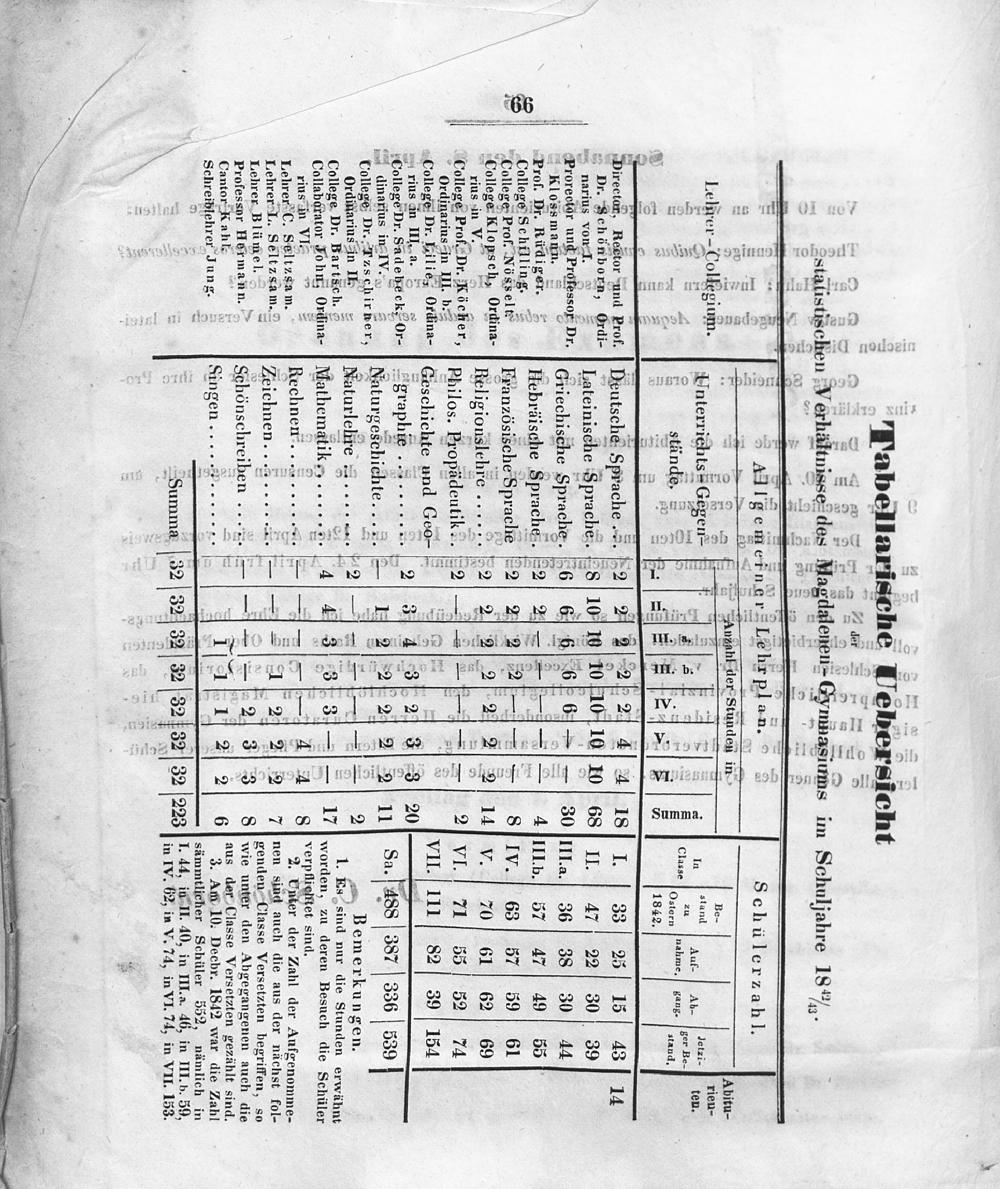 66
Tabellarische Uebersicht
der
statistischen Verhältnisse des Magdalenen-Gymnasiums im Schuljahre 18 42/43.
Lehrer-Collegium.
Director, Rector und Prof.
Dr. Schönborn, Ordi-
narius von I.
Prorector und Professor Dr.
Klossmann.
Prof. Dr. Rüdiger.
College Schilling.
College Prof. Nösselt.
College Klopsch, Ordina-
rius in V.
College Prof. Dr. Köcher,
Ordinarius in III. b.
College Dr. Lilie, Ordina-
rius in III. a.
College Dr. Sadebeck, Or-
dinarius in IV.
College Dr. Tzschirner,
Ordinarius in II.
College Dr. Bartsch.
Collaborator John, Ordina-
rius in VI.
Lehrer C. Seltzsam.
Lehrer L. Seltzsam.
Lehrer Blümel.
Professor Hermann.
Cantor Kahl.
Schreiblehrer Jung.
Allgemeiner Lehrplan.
Unterrichts-Gegen-
stände.
Anzahl der Stunden in
I. II. III. a. III. b. IV. V. VI. Summa.
Deutsche Sprache .. 2 2 2 2 2 4 4 18
Lateinische Sprache. 8 10 10 10 10 10 10 68
Griechische Sprache. 6 6 6 6 6 — — 30
Hebräische Sprache. 2 2 — — — — — 4
Französische Sprache 2 2 2 2 — — — 8
Religionslehre ..... 2 2 2 2 2 2 2 14
Philos. Propädeutik . 2 — — — — — — 2
Geschichte und Geo-
graphie ........ 2 3 4 3 2 3 3 20
Naturgeschichte .... — 1 2 2 2 2 2 11
Naturlehre ........ 2 — — — — — — 2
Mathematik ....... 4 4 3 3 3 — — 17
Rechnen .......... — — — — — 4 4 8
Zeichnen.......... — — — 1 2 2 2 7
Schönschreiben .... — — — — 2 3 3 8
Singen ........... — — 1 1 1 2 2 6
Summa 32 32 32 32 32 32 32 223
Schülerzahl.
In Classe
Be-
stand
zu
Ostern
1842.
Auf-
nahme.
Ab-
gang.
Jetzi-
ger Be-
stand.
Abitu-
rien-
ten.
I. 33 25 15 43 14
II. 47 22 30 39
III.a. 36 38 30 44
III.b. 57 47 49 55
IV. 63 57 59 61
V. 70 61 62 69
VI. 71 55 52 74
VII. 111 82 39 154
Sa. 488 387 336 539
Bemerkungen.
1. Es sind nur die Stunden erwähnt
worden, zu deren Besuch die Schüler
verpflichtet sind.
2. Unter der Zahl der Aufgenomme-
nen sind auch die aus der nächst fol-
genden Classe Versetzten begriffen, so
wie unter den Abgegangenen auch die
aus der Classe Versetzten gezählt sind.
3. Am 10. Decbr. 1842 war die Zahl
sämmtlicher Schüler 552, nämlich in
I. 44, in II. 40, in III.a. 46, in III. b. 59,
in IV. 62, in V. 74, in VI. 74, in VII. 153.